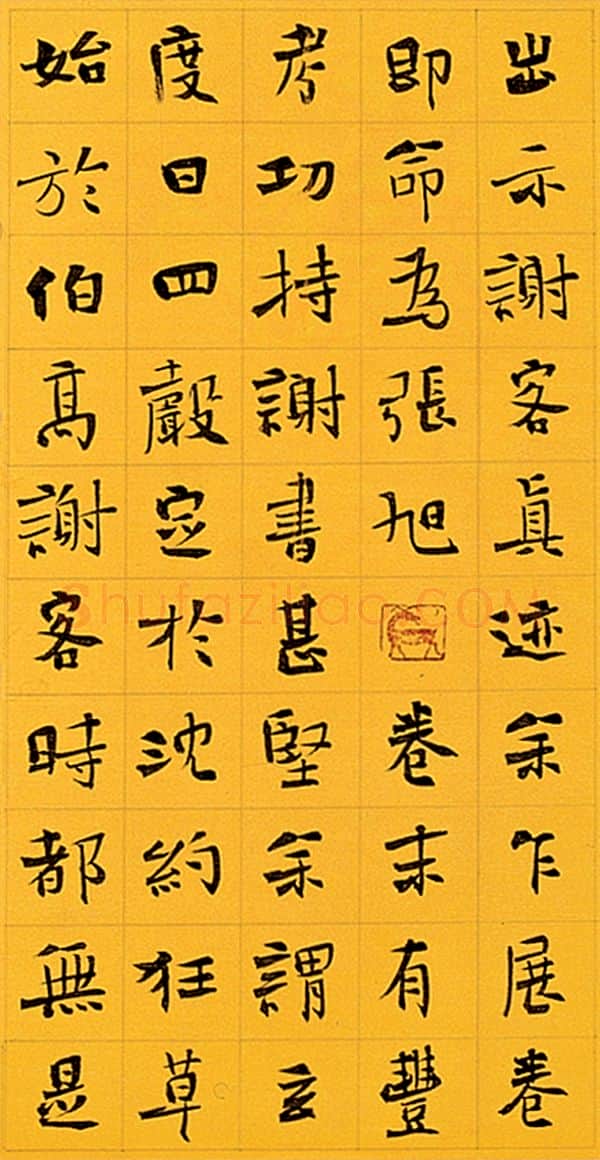 出示謝客眞迹余乍展卷
即命為張旭卷末有豐
考功持謝書甚堅余謂玄
度曰四聲定於沈約狂草
始於伯高謝客時都無是
Shufaziliao.COM